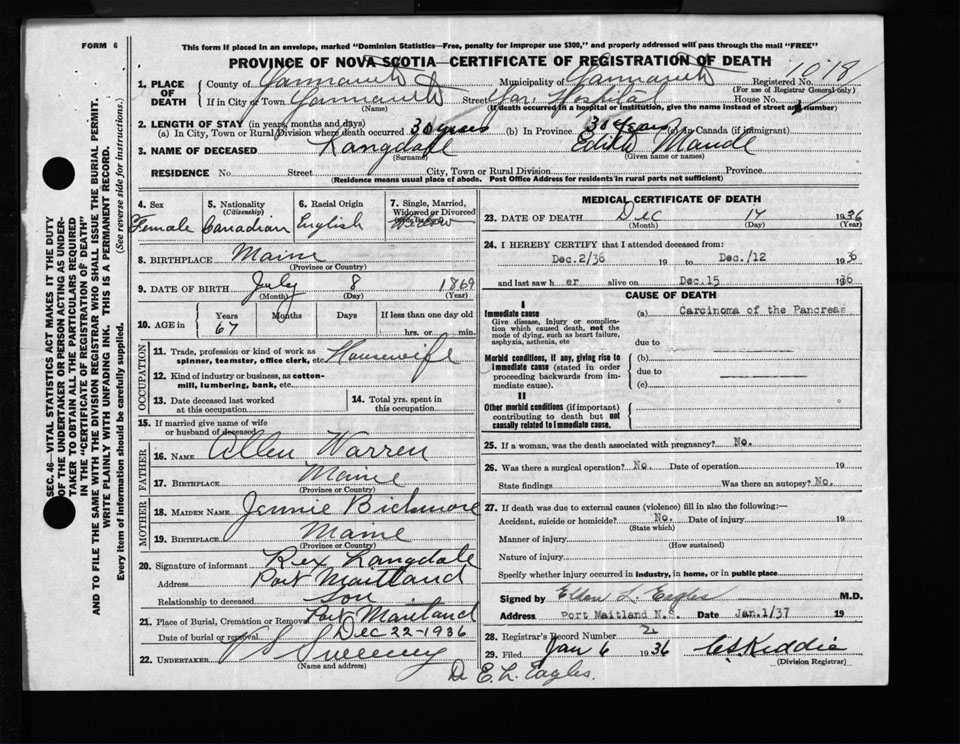 FORM 6
This form if placed in an envelope, marked "Dominion Statistics—Free, penalty for improper use $300," and properly addressed will pass through the mail "FREE"
PROVINCE OF NOVA SCOTIA—CERTIFICATE OF REGISTRATION OF DEATH
1018
1. PLACE OF DEATH
County of Yarmouth Municipality of Yarmouth Registered No.
(For use of Registrar General only)
If in City or Town Yarmouth Street Yar. Hospital House No.
(Name) (If death occurred in a hospital or institution, give the name instead of street and number)
2. LENGTH OF STAY (in years, months and days)
(a) In City, Town or Rural Division where death occurred 30 years (b) In Province 30 years (c) in Canada (if immigrant)
3. NAME OF DECEASED Langdale Edith Maude
(Surname) (Given name or names)
RESIDENCE No. Street City, Town or Rural Division Province
(Residence means usual place of abode. Post Office Address for residents in rural parts not sufficient)
SEC. 46—VITAL STATISTICS ACT MAKES IT THE DUTY
OF THE UNDERTAKER OR PERSON ACTING AS UNDER-
TAKER TO OBTAIN ALL THE PARTICULARS REQUIRED
IN THE "CERTIFICATE OF REGISTRATION OF DEATH"
AND TO FILE THE SAME WITH THE DIVISION REGISTRAR WHO SHALL ISSUE THE BURIAL PERMIT.
WRITE PLAINLY WITH UNFADING INK. THIS IS A PERMANENT RECORD.
Every item of information should be carefully supplied. (See reverse side for instructions.)
4. Sex
Female
5. Nationality
(Citizenship)
Canadian
6. Racial Origin
English
7. Single, Married,
Widowed or Divorced
Widow
8. BIRTHPLACE Maine
(Province or Country)
9. DATE OF BIRTH July 8 1869
(Month) (Day) (Year)
10. AGE in Years Months Days If less than one day old
67 hrs. or min.
OCCUPATION
11. Trade, profession or kind of work as
spinner, teamster, office clerk, etc. Housewife
12. Kind of industry or business, as cotton-
mill, lumbering, bank, etc.
13. Date deceased last worked
at this occupation
14. Total yrs. spent in
this occupation
15. If married give name of wife
or husband of deceased
FATHER
16. NAME Allen Warren
17. BIRTHPLACE Maine
(Province or Country)
MOTHER
18. MAIDEN NAME Jennie Bickmore
19. BIRTHPLACE Maine
(Province or Country)
20. Signature of informant Rex Langdale
Address Port Maitland
Relationship to deceased Son
21. Place of Burial, Cremation or Removal Port Maitland
Date of burial or removal Dec 22-1936
22. UNDERTAKER Sweeney
(Name and address)
D. E. L. Eagles.
MEDICAL CERTIFICATE OF DEATH
23. DATE OF DEATH Dec 17 1936
(Month) (Day) (Year)
24. I HEREBY CERTIFY that I attended deceased from:
Dec.2/36 19 to Dec./12 193 6
and last saw h er alive on Dec.15 1936
CAUSE OF DEATH
I
Immediate cause
Give disease, injury or complica-
tion which caused death, not the
mode of dying, such as heart failure,
asphyxia, asthenia, etc
(a) Carcinoma of the Pancreas
due to
Morbid conditions, if any, giving rise to
immediate cause (stated in order
proceeding backwards from im-
mediate cause).
(b)
due to
(c)
II
Other morbid conditions (if important)
contributing to death but not
causally related to immediate cause.
25. If a woman, was the death associated with pregnancy? No.
26. Was there a surgical operation? No. Date of operation 19
State findings Was there an autopsy? No.
27. If death was due to external causes (violence) fill in also the following:—
Accident, suicide or homicide? No. Date of injury 19
(State which)
Manner of injury
(How sustained)
Nature of injury
Specify whether injury occurred in industry, in home, or in public place
Signed by Ellen L. Eagles M.D.
Address Port Maitland N.S. Date Jan.1/37 19
28. Registrar's Record Number 2
29. Filed Jan 6 1936 C S Kiddie
(Division Registrar)